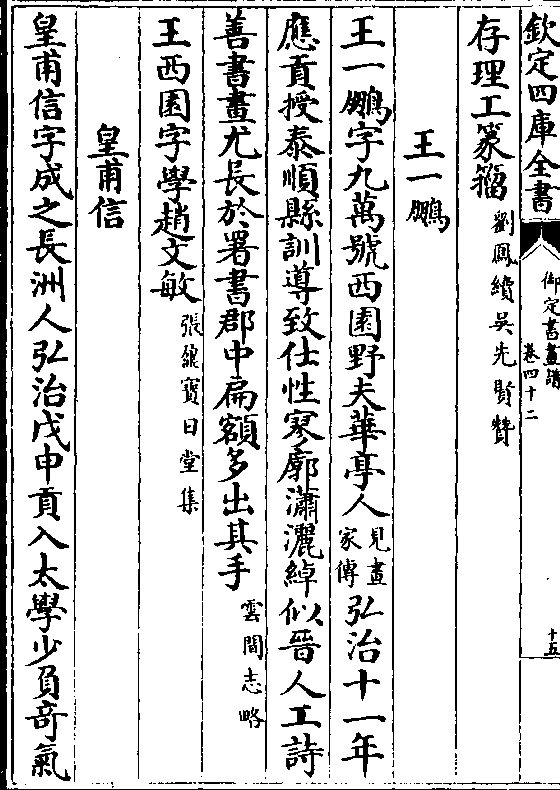 欽定四庫全書
御定書畫譜
卷四十二
十五
存理工篆籀劉鳳續吳先賢贊
王一鵬
王一鵬字九萬號西園野夫華亭人見畫家傳弘治十一年
應貢授泰順縣訓導致仕性寥廓瀟灑綽似晉人工詩
善書畫尤長於署書郡中扁額多出其手雲間志略
王西園字學趙文敏張鼐寶日堂集
皇甫信
皇甫信字成之長洲人弘治戊申貢入太學少負奇氣